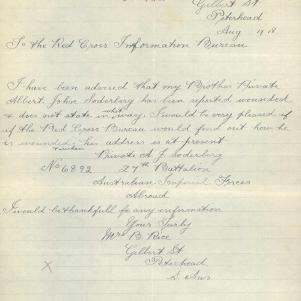 Gilbert St.
Peterhead
Aug 1918
To the Red Cross Information Bureau
I have been advised that my Brother Private
Albert John Soderberg has been reported wounded
& does not state in what way. I would be very pleased if
if the Red Cross Bureau would find out how he
is wounded, his address is at present
Number
Private A. J. Soderberg
No 6892 27th Battalion
Australian Imperial Forces
Abroad
I would be thankfull fo any information
Yours Turly
Mrs B. Rice
Gilbert St
Peterhead
S. Aus
X